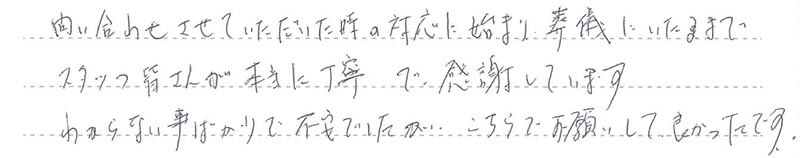 問い合わせさせていただいた時の対応に始まり葬儀にいたるまで
スタッフ皆さんが本当に丁寧で感謝しています
わからない事ばかりで不安でしたが、こちらでお願いして良かったです.